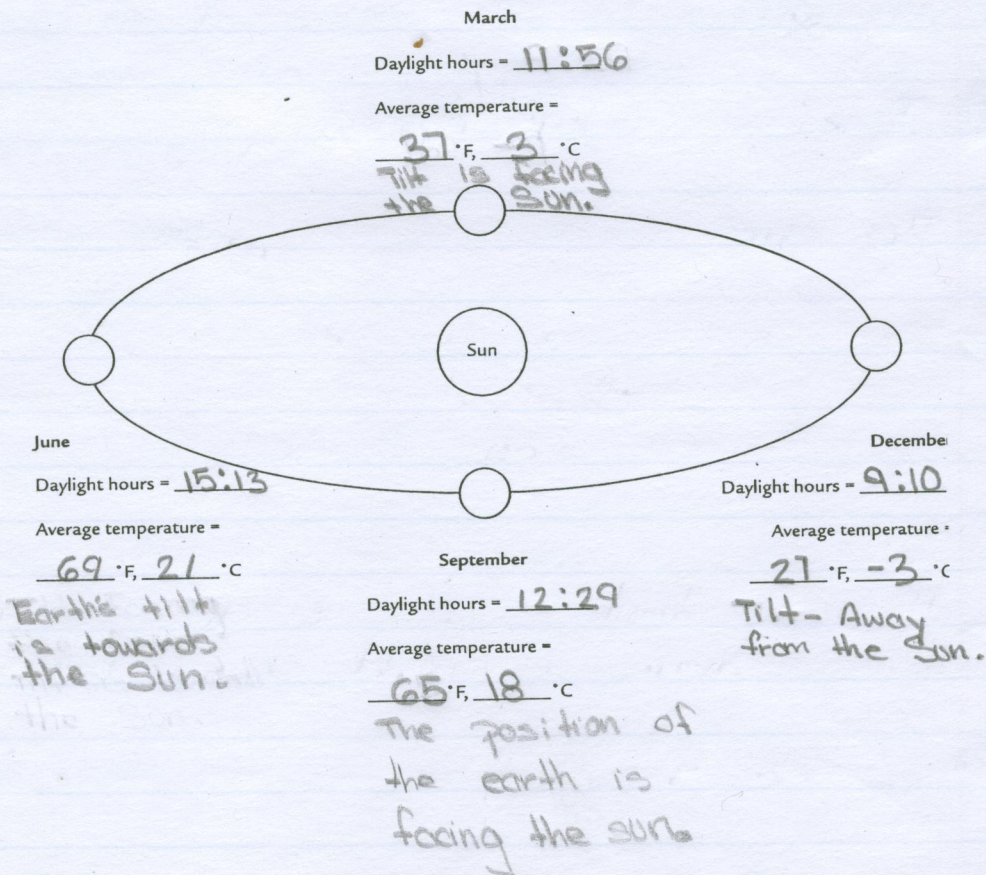 March
Daylight hours = 11:56
Average temperature =
37 °F, 3 °C
Tilt is facing
the Sun.
Sun
June
Daylight hours = 15:13
Average temperature =
69 °F, 21 °C
Earth's tilt
is towards
the Sun.
September
Daylight hours = 12:29
Average temperature =
65 °F, 18 °C
The position of
the earth is
facing the sun.
Decembe
Daylight hours = 9:10
Average temperature
27 °F, -3 °C
Tilt - Away
from the Sun.